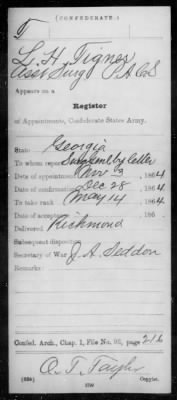 (CONFEDERATE.)
T
L. H. Tignor
Asst Surg P. A. C. S.
Appears on a
Register
of Appointments, Confederate States Army.
State Georgia
To whom report by letter
Date of appointment Nov 19, 1864
Date of confirmation Dec 28, 1864
To take rank May 14, 1864
Date of acceptance , 186 .
Delivered Richmond
Subsequent disposition
Secretary of War J. A. Seddon
Remarks:
Confed. Arch., Chap. 1, File No. 93, page 216
O. T. Taylor
Copyist.